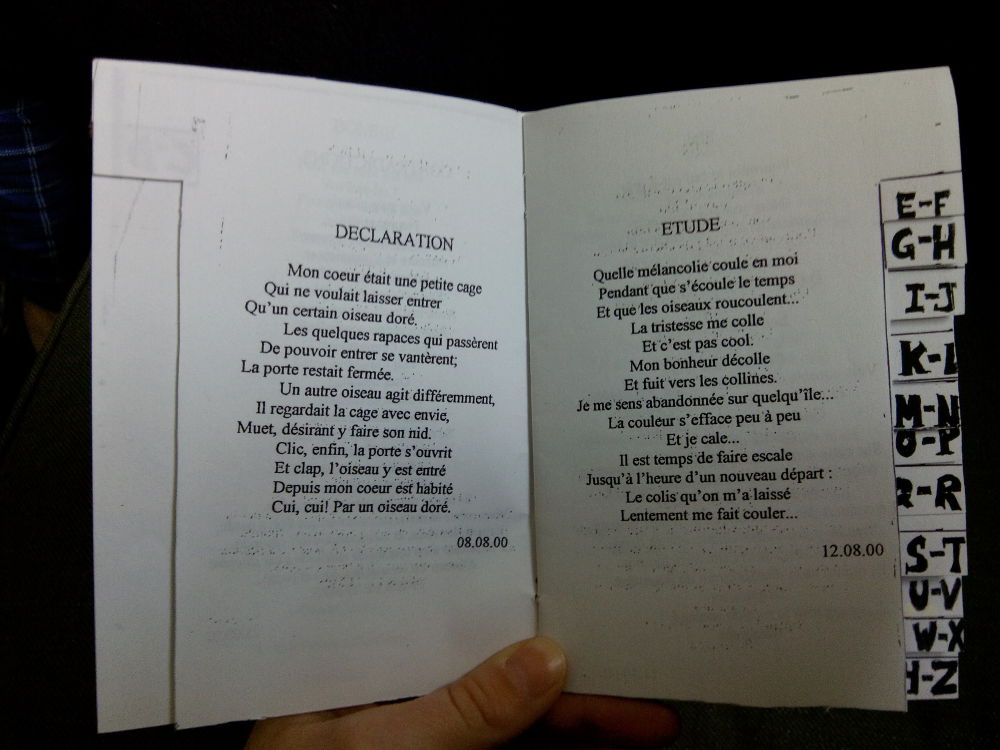 DECLARATION
Mon coeur était une petite cage
Qui ne voulait laisser entrer
Qu'un certain oiseau doré.
Les quelques rapaces qui passèrent
De pouvoir entrer se vantèrent;
La porte restait fermée.
Un autre oiseau agit différemment,
Il regardait la cage avec envie,
Muet, désirant y faire son nid.
Clic, enfin, la porte s'ouvrit
Et clap, l'oiseau y est entré
Depuis mon coeur est habité
Cui, cui! Par un oiseau doré.
08.08.00
ETUDE
Quelle mélancolie coule en moi
Pendant que s'écoule le temps
Et que les oiseaux roucoulent...
La tristesse me colle
Et c'est pas cool.
Mon bonheur décolle
Et fuit vers les collines.
Je me sens abandonnée sur quelqu'île...
La couleur s'efface peu à peu
Et je cale...
Il est temps de faire escale
Jusqu'à l'heure d'un nouveau départ :
Le colis qu'on m'a laissé
Lentement me fait couler...
12.08.00
E-F
G-H
I-J
K-L
M-N
O-P
Q-R
S-T
U-V
W-X
Y-Z